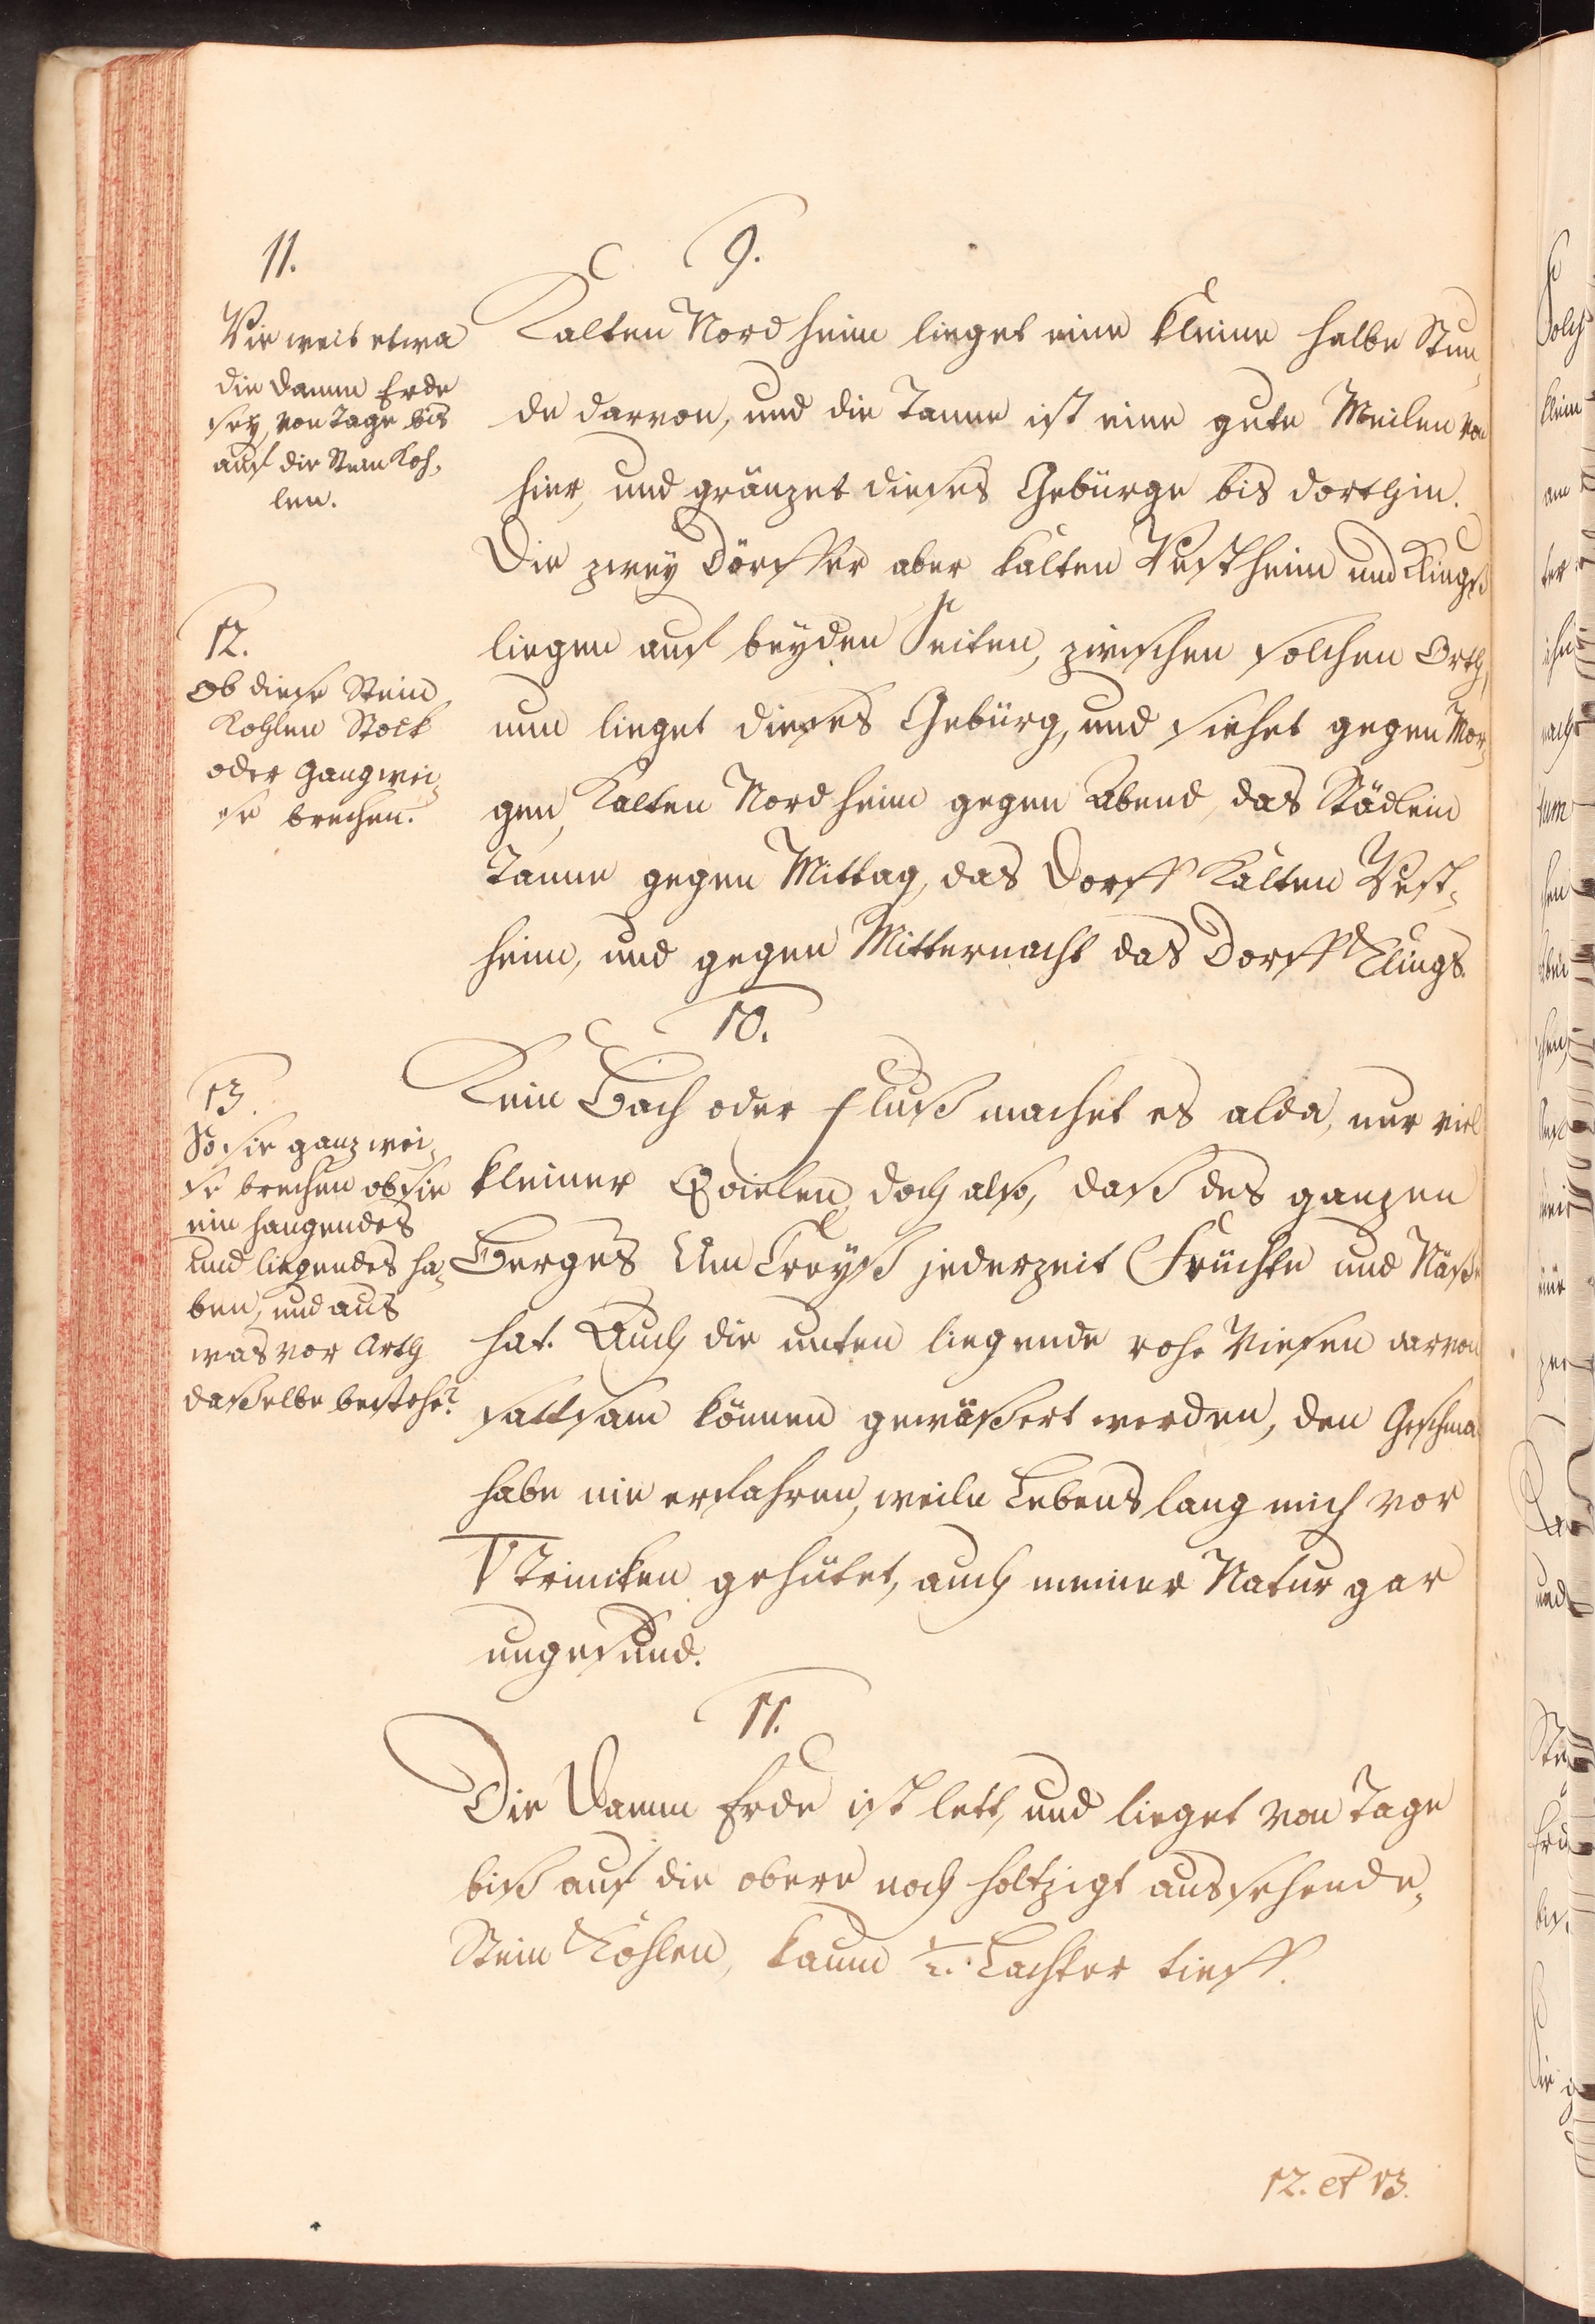 11.
Wie weit etwa
die Damm Erde
sey, von Tage bis
auf die Stein Koh¬
len.
12.
Ob diese Stein
Kohlen Stock
oder Gangwei¬
se brechen.
13.
So sie gangwei¬
se brechen ob sie
ein hangendes
und liegendes ha¬
ben, und aus
was vor Arth
daßelbe bestehe?
9.
Kalten Nordheim lieget eine kleine halbe Stun¬
de darvon, und die Tanne ist eine gute Meilen von
hier, und gränzet dieses Gebürge bis dorthin.
Die zwey Dörffer aber Kalten Westheim und Klings
liegen auf beyden Seiten, zwischen solchen Orth,
nun lieget dieses Gebürg, und siehet gegen Mor¬
gen, Kalten Nordheim gegen Abend, das Städlein
Tanne gegen Mittag, das Dorff Kalten West¬
heim, und gegen Mitternacht das Dorff Klings.
10.
Kein Bach oder Fluß machet es alda, nur viel
kleiner Qvielen, doch also, daß des ganzen
Berges Um Creyß jederzeit Früchte und Näße
hat. Auch die unten liegende rohe Wiesen darvon
sattsam können gewäßert werden, den Geschma
habe nie erfahren, weiln Lebenslang mich vor
Trincken gehütet, auch meiner Natur gar
ungesund.
11.
Die Damm Erde ist lett, und lieget von Tage
biß auf die obere noch holtzigt aussehende,
Stein Kohlen, kaum 1/2. Lachter tieff.
12. et 13.